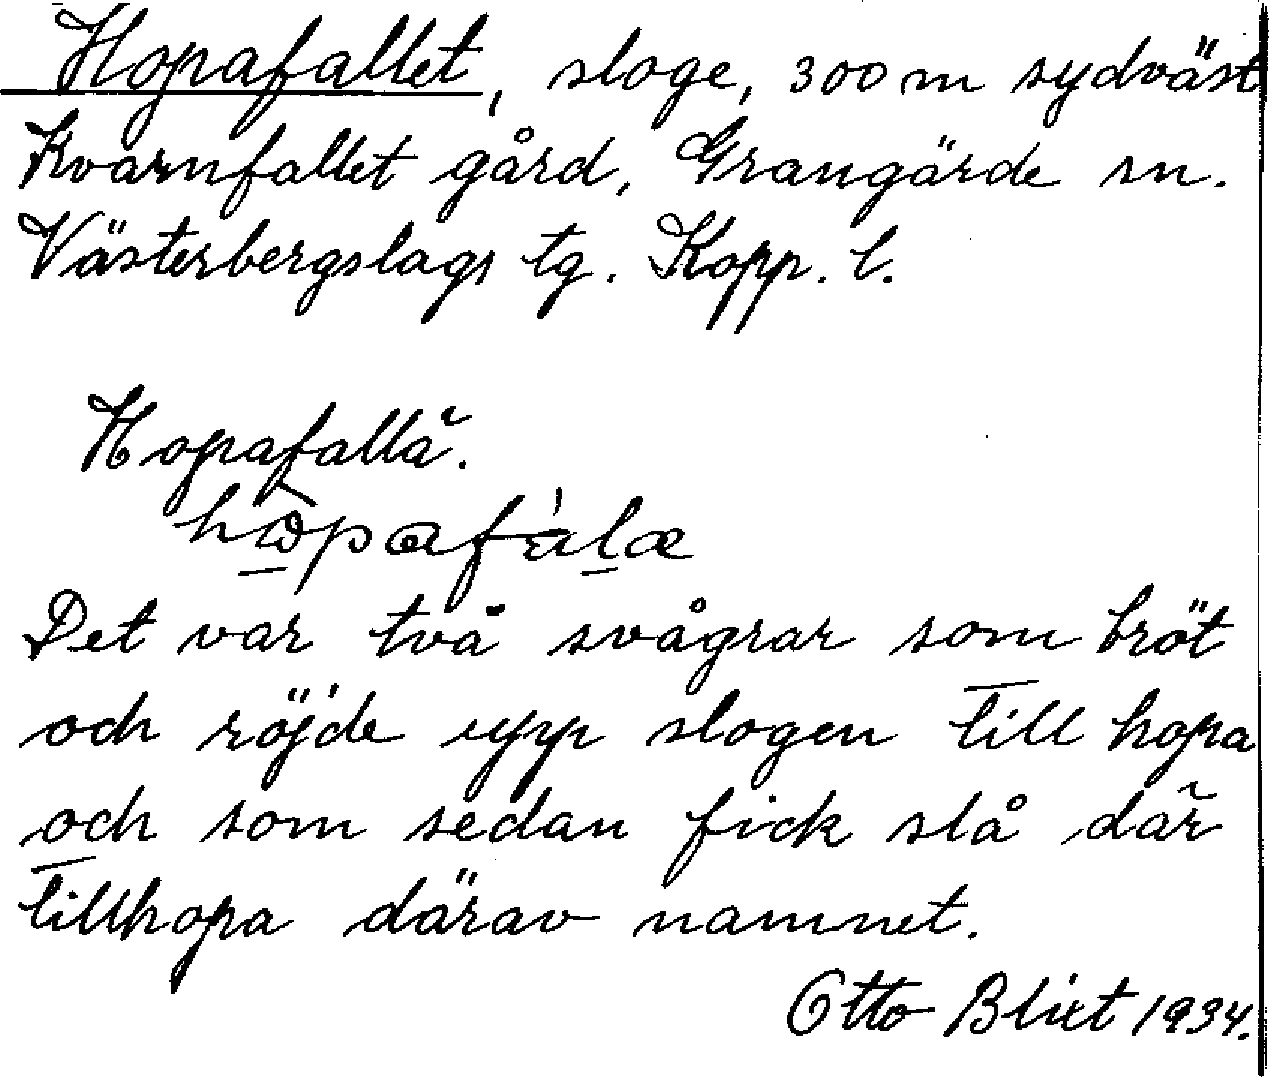 Hopafallet, sloge, 300 m sydväst
Kvarnfallet gård, Grangärde sn.
Västerbergslags tg. Kopp. l.
Hopafallä.
Det var två svågrar som bröt
och röjde upp slogen till hopa
och som sedan fick slå där
tillhopa därav namnet.
Otto Blixt 1934.